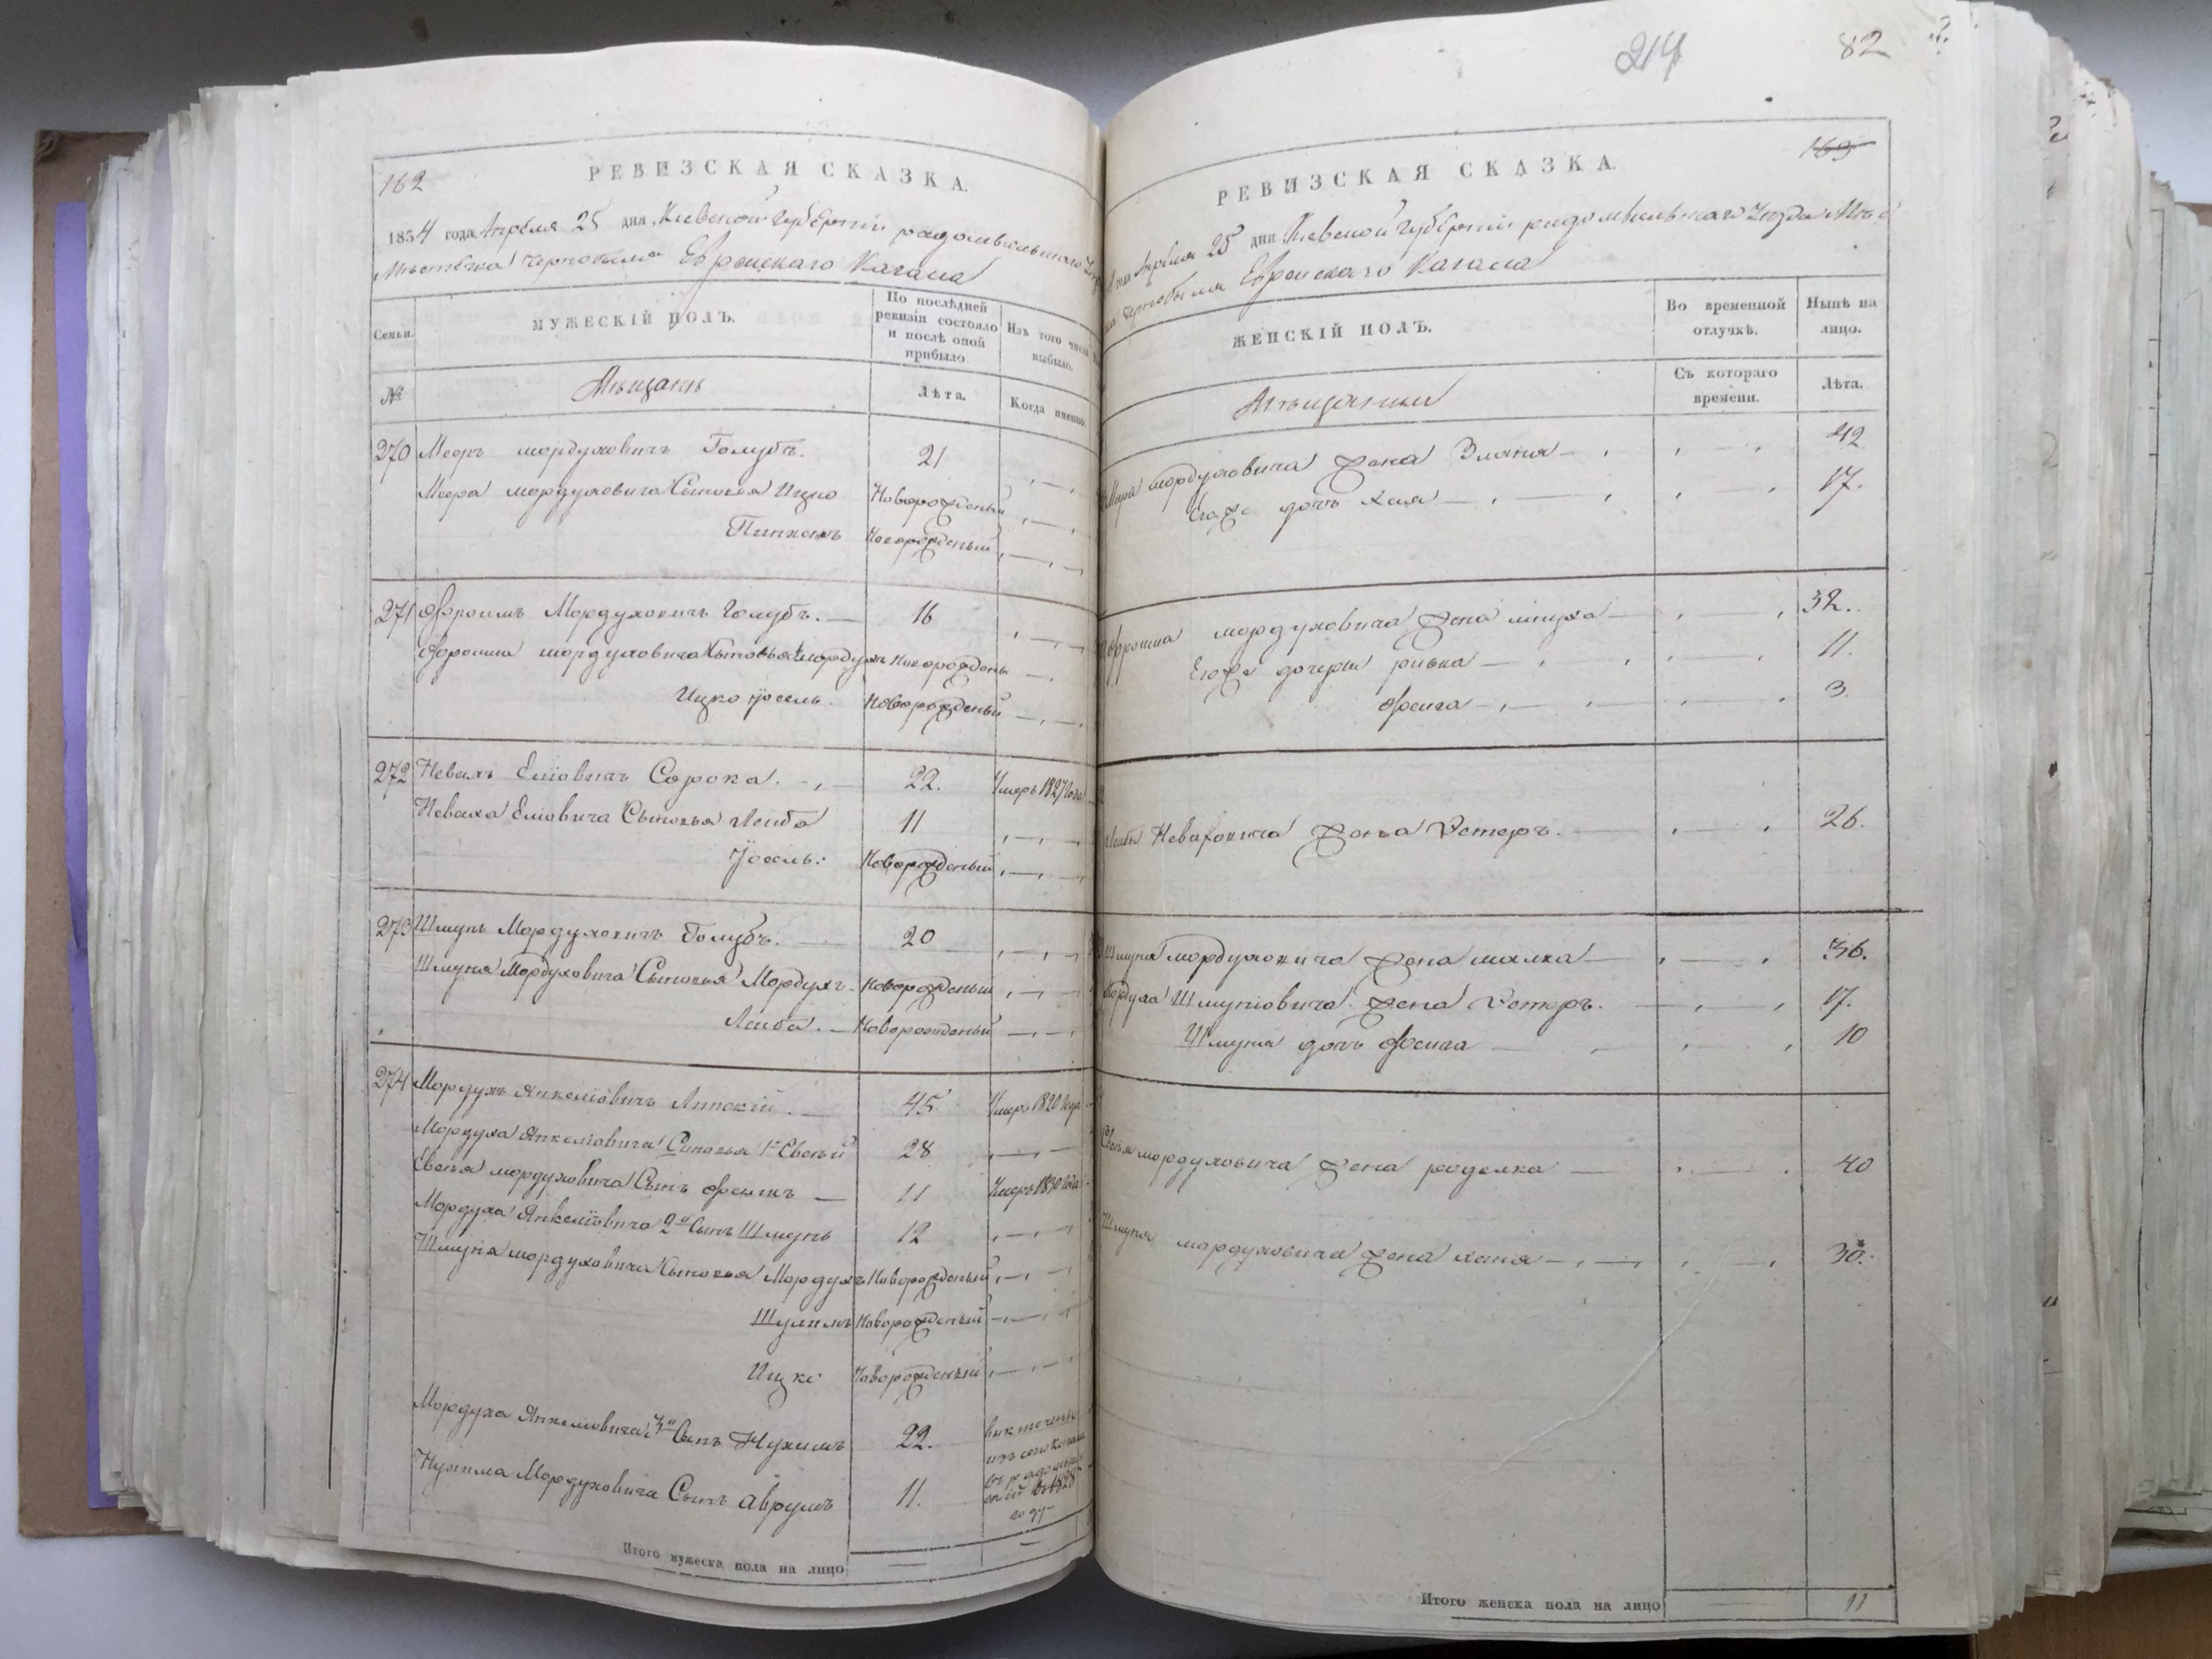 162
РЕВИЗСКАЯ СКАЗКА.
1834 года Апреля 25 дня Киевской Губерніи радомысльскаго
Мѣстечка Чернобыля Еврейскаго Кагала
Семьи.
МУЖЕСКІЙ ПОЛЪ.
По послѣдней ревизіи состояло и послѣ оной прибыло
Изъ того числа выбыло.
№
Мѣщанъ
Лѣта.
Когда именно.
270 Мееръ мордуховичъ Голубъ. 21
Меера мордуховича Сыновья Ицко Новорожденый
Пинхасъ Новорожденый
271 Фроимъ Мордуховичъ Голубъ. 16
Фроима мордуховича Сыновья Мордухъ Новорождены
Ицко Іосель. Новорожденый
272 Невахъ Еліовичъ Сорока. 22. Умеръ 1827 года
Неваха Еліовича Сыновья Лейба 11
Іосель: Новорожденый
273 Шмунь Мордуховичъ Голубъ. 20
Шмуня Мордуховича Сыновья Мордухъ Новорожденый
Лейба. Новорожденый
274 Мордухъ Янкеліовичъ Липскій. 45 Умеръ 1820 года
Мордуха Янкеліовича Синовья 1й Евсей 28
Евсея мордуховича Сынъ Фроимъ 11 Умеръ 1830 года
Мордуха Янкеліовича 2й Сынъ Шмунь 12
Шмуня мордуховича Сыновья Мордухъ Новорожденый
Шулимъ Новорожденый
Ицко Новорожденый
Мордуха Янкеліовича 3й Сынъ Нухимъ 22.
Нухима Мордуховича Сынъ Аврумъ 11. 1828 году
Итого мужеска пола на лицо
214 82
163
РЕВИЗСКАЯ СКАЗКА.
Апреля 25 дня Киевской Губерніи радомысльскаго Уѣзда
Чернобыля Еврейскаго Кагала
ЖЕНСКІЙ ПОЛЪ.
Во временной отлучкѣ.
Нынѣ на лицо.
Мѣщанки
Съ котораго времени.
Лѣта.
Меера мордуховича Жена Злата 42
Егоже дочь Хая 17.
Фроима мордуховича Жена 32.
Егоже дочери ривка 11.
Фейга 3.
Лейбы Неваховича Жена Эстеръ. 26.
Шмуня мордуховича Жена малка 36.
Мордуха Шмуніовича Жена Эстеръ. 17.
Шмуня дочь Фейга 10
Евсея мордуховича Жена 40
Шмуня мордуховича Жена хана 30.
Итого женска пола на лицо 11